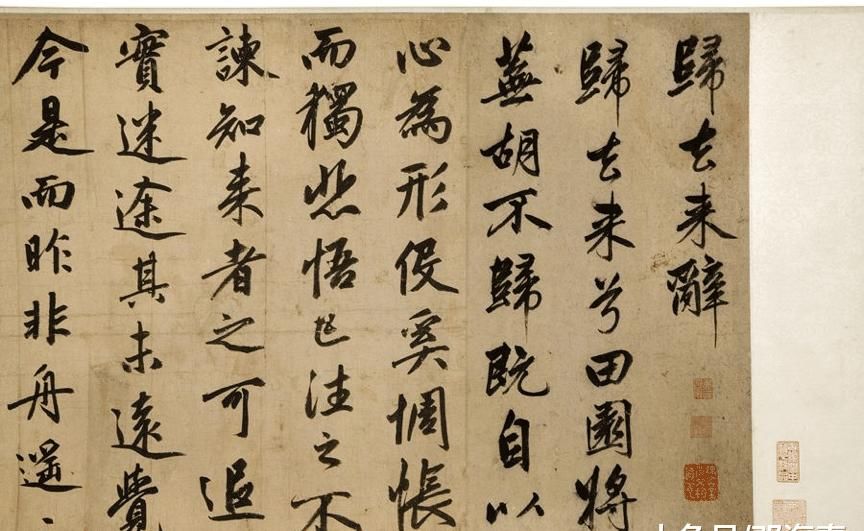 歸去来辭
歸去来兮田園將
蕪胡不歸既自以
心為形役奚惆悵
而獨悲悟已往之不
諫知来者之可追
實迷途其未遠覺
今是而昨非舟遥〻